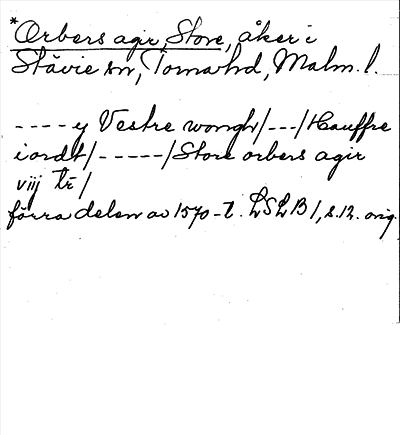 *Orbers agir, Store, åker i
Stävie sn, Torna hd, Malm. l.
---- y Vestre wongh/---/Hauffre
i ordt/-----/Store orbers agir
viij tr/
förra delen av 1570-t. LSLB 1, s. 12. orig.